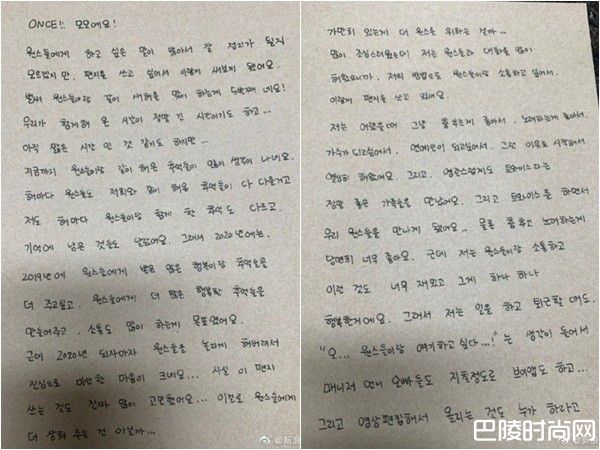 ONCE!! 모모에요!
원스들에게 하고 싶은 말이 많아서 잘 정리가 될지
모르겠지만, 편지를 쓰고 싶어서 이렇게 써보게 됐어요.
벌써 원스들이랑 같이 새해를 맞이 하는게 5번째 네요!
우리가 함께해 온 시간이 정말 긴 시간이기도 하고...
아직 짧은 시간 인 것 같기도 해지만...
지금까지 원스들이랑 같이 해온 추억들이 많이 생각이 나네요.
해마다 원스들도 저희와 많이 해온 추억들이 다 다를거고
저도 해마다 원스들이랑 함께 한 추억도 다르고,
기억에 남은 것들도 달랐어요. 그래서 2020년에는,
2019년에 원스들에게 받은 많은 행복이랑 추억들을
더 주고싶고, 원스들에게 더 많은 행복한 추억들을
만들어주고, 소통도 많이 하는게 목표였어요.
근데 2020년 되자마자 원스들을 놀라게 해버려서
진심으로 미안한 마음이 크네요... 사실 이 편지
쓰는 것도 진짜 많이 고민했어요... 이걸로 원스들에게
더 상처 주는 건 아닐까...
가만히 있는게 더 원스를 위하는 걸까...
많이 조심스러웠는데 저는 원스들과 대화를 많이
해왔으니까, 저의 방법으로 원스들이랑 소통하고 싶어서,
이렇게 편지를 쓰고 있어요.
저는 어렸을때 그냥 춤추는게 좋아서, 노래하는게 좋아서,
가수가 되고싶어서, 연예인이 되고싶어서, 그런 이유로 시작해서
열심히 해왔어요. 그리고, 영광스럽게도 트와이스라는
정말 좋은 가족들을 만났어요. 그리고 트와이스를 하면서
우리 원스들을 만나게 됐어요.. 물론 춤추고 노래하는게
당연히 너무 좋아요. 근데 저는 원스들이랑 소통하고
이런 것도 너무 재밌고 그게 하나 하나
행복한거에요. 그래서 저는 일을 하고 퇴근할 때도,
"오... 원스들이랑 얘기하고 싶다...!" 는 생각이 들어서
매니저 언니 오빠들도 지칠정도로 브이앱도 하고...
그리고 영상편집해서 올리는 것도 누가 하라고
巴陵时尚网